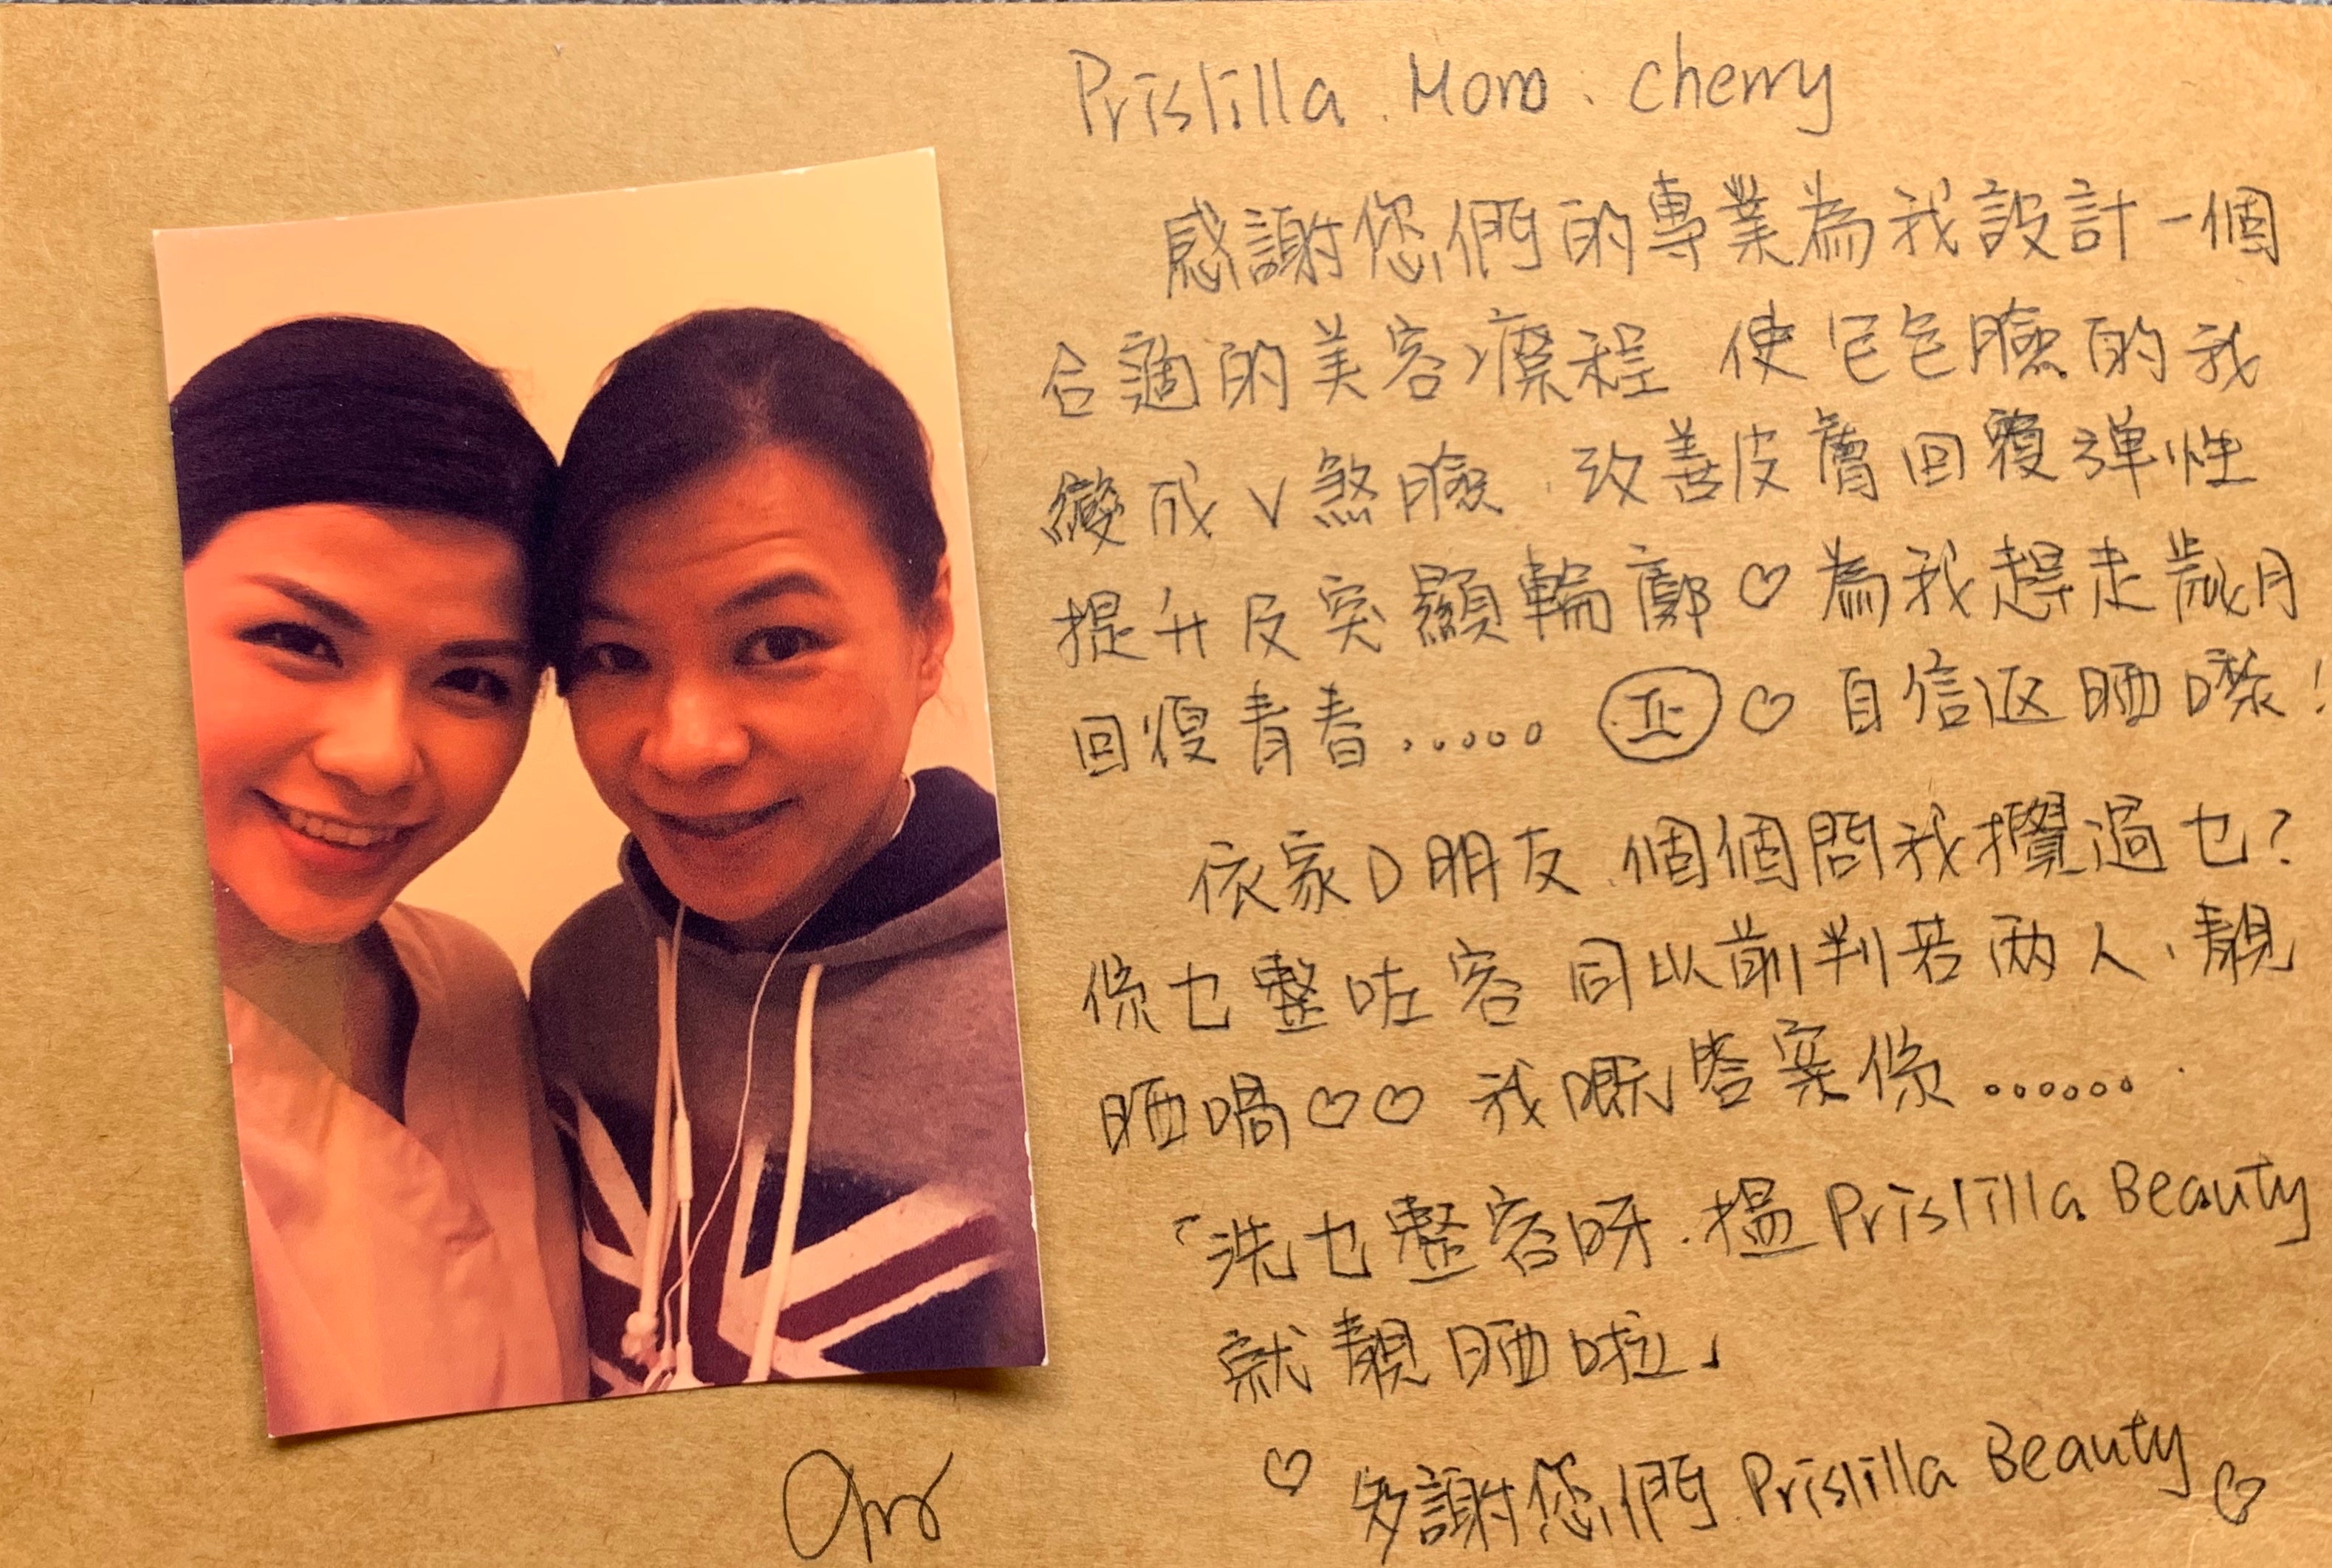 Prislilla. Momo. Cherry
感謝您們的專業為我設計一個
合適的美容療程 使包包臉的我
變成V煞臉.改善皮膚回覆彈性
提升及突顯輪廓♡為我趕走歲月
回復青春...... 正♡自信返晒嚟!
依家D朋友.個個問我攪過乜?
係乜整咗容 同以前判若兩人、靚
晒喎♡♡ 我嘅答案係......
「洗乜整容呀.搵Prislilla Beauty
就靚晒啦」
♡ 多謝您們Prislilla Beauty ♡